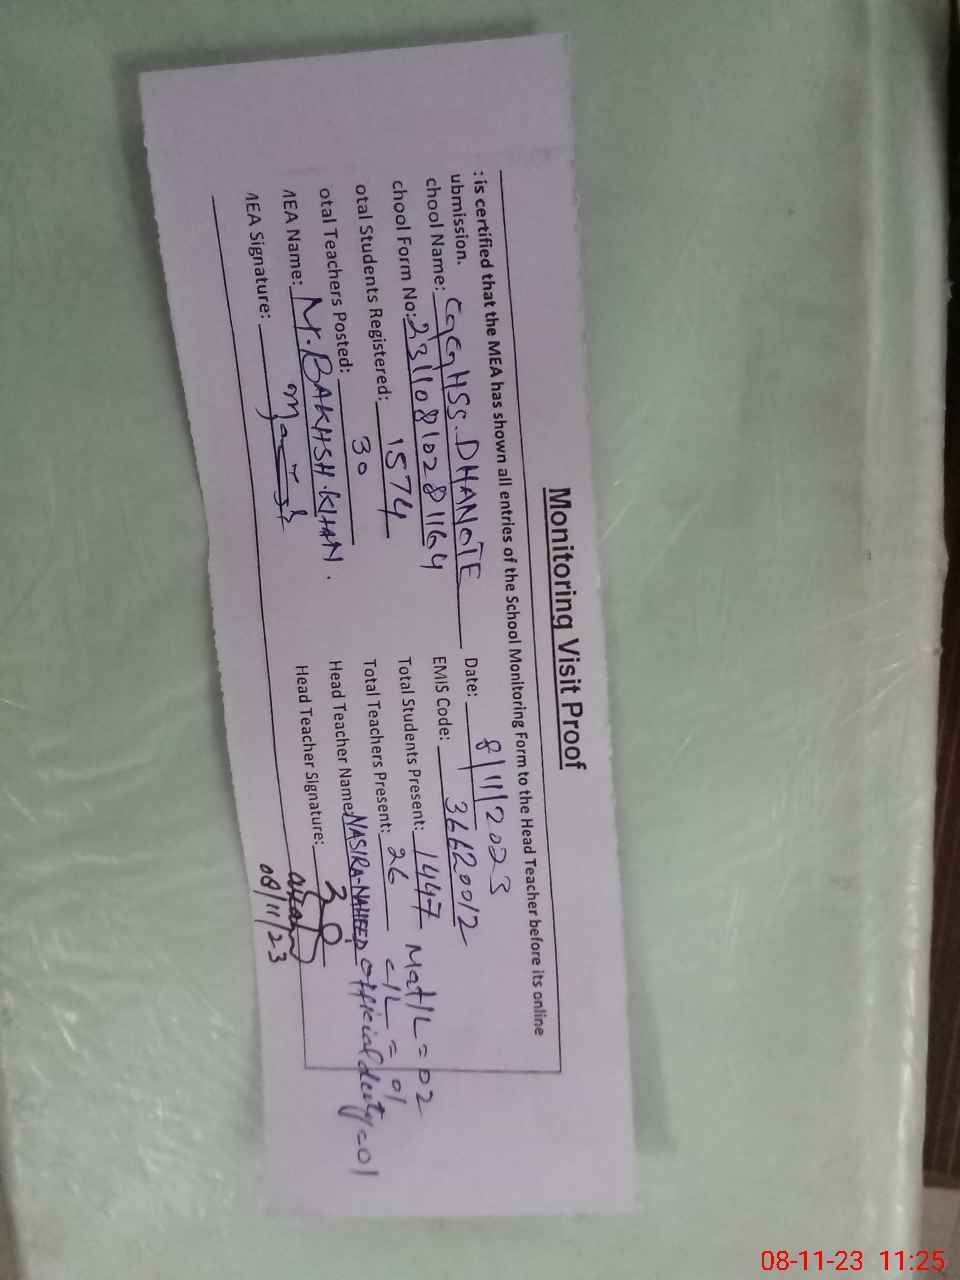 Monitoring Visit Proof
: is certified that the MEA has shown all entries of the School Monitoring Form to the Head Teacher before its online
ubmission.
Date: 8/11/2023
chool Name: GGHSS. DHANOTE
EMIS Code: 36620012
chool Form No: 23110810281164
Total Students Present: 1447 Mat/L = 02
otal Students Registered: 1574
Total Teachers Present: 26 C/L = 01
otal Teachers Posted: 30
Head Teacher Name: NASIRA-NAHEED official duty = 01
MEA Name: M. BAKHSH. KHAN.
Head Teacher Signature:
08/11/23
MEA Signature:
08-11-23 11:25